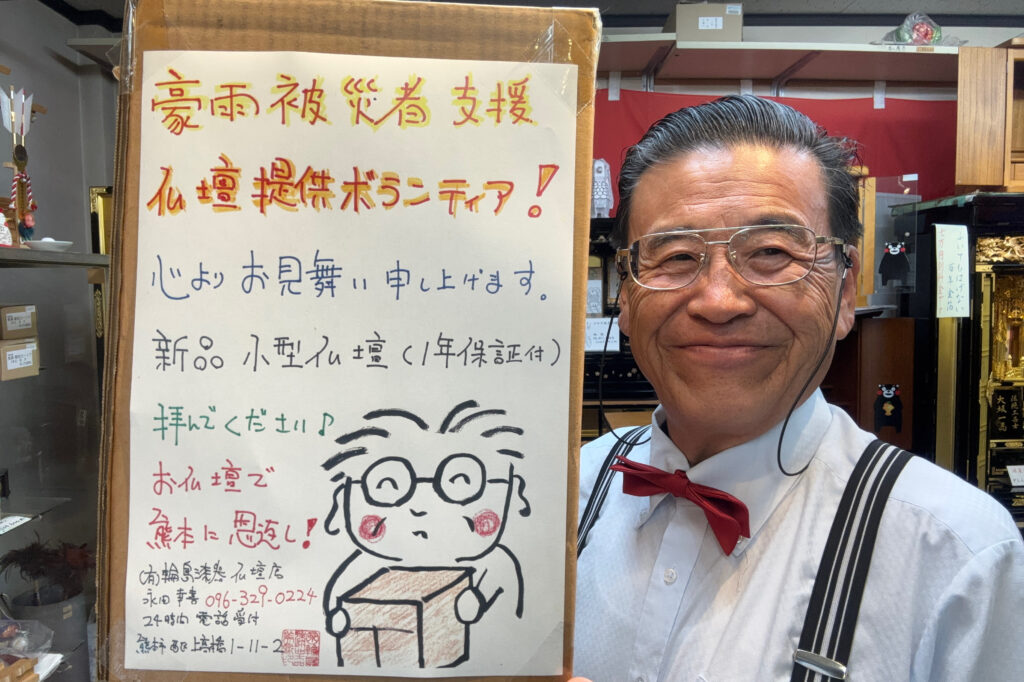 豪雨被災者支援
仏壇提供ボランティア！
心よりお見舞い申し上げます。
新品 小型仏壇（1年保証付）
拝んでください♪
お仏壇で
熊本に恩返し！
(有)輪島漆器仏壇店
永田幸喜 096-329-0224
24時間 電話受付
熊本市西区上高橋1-11-2
大坂一高